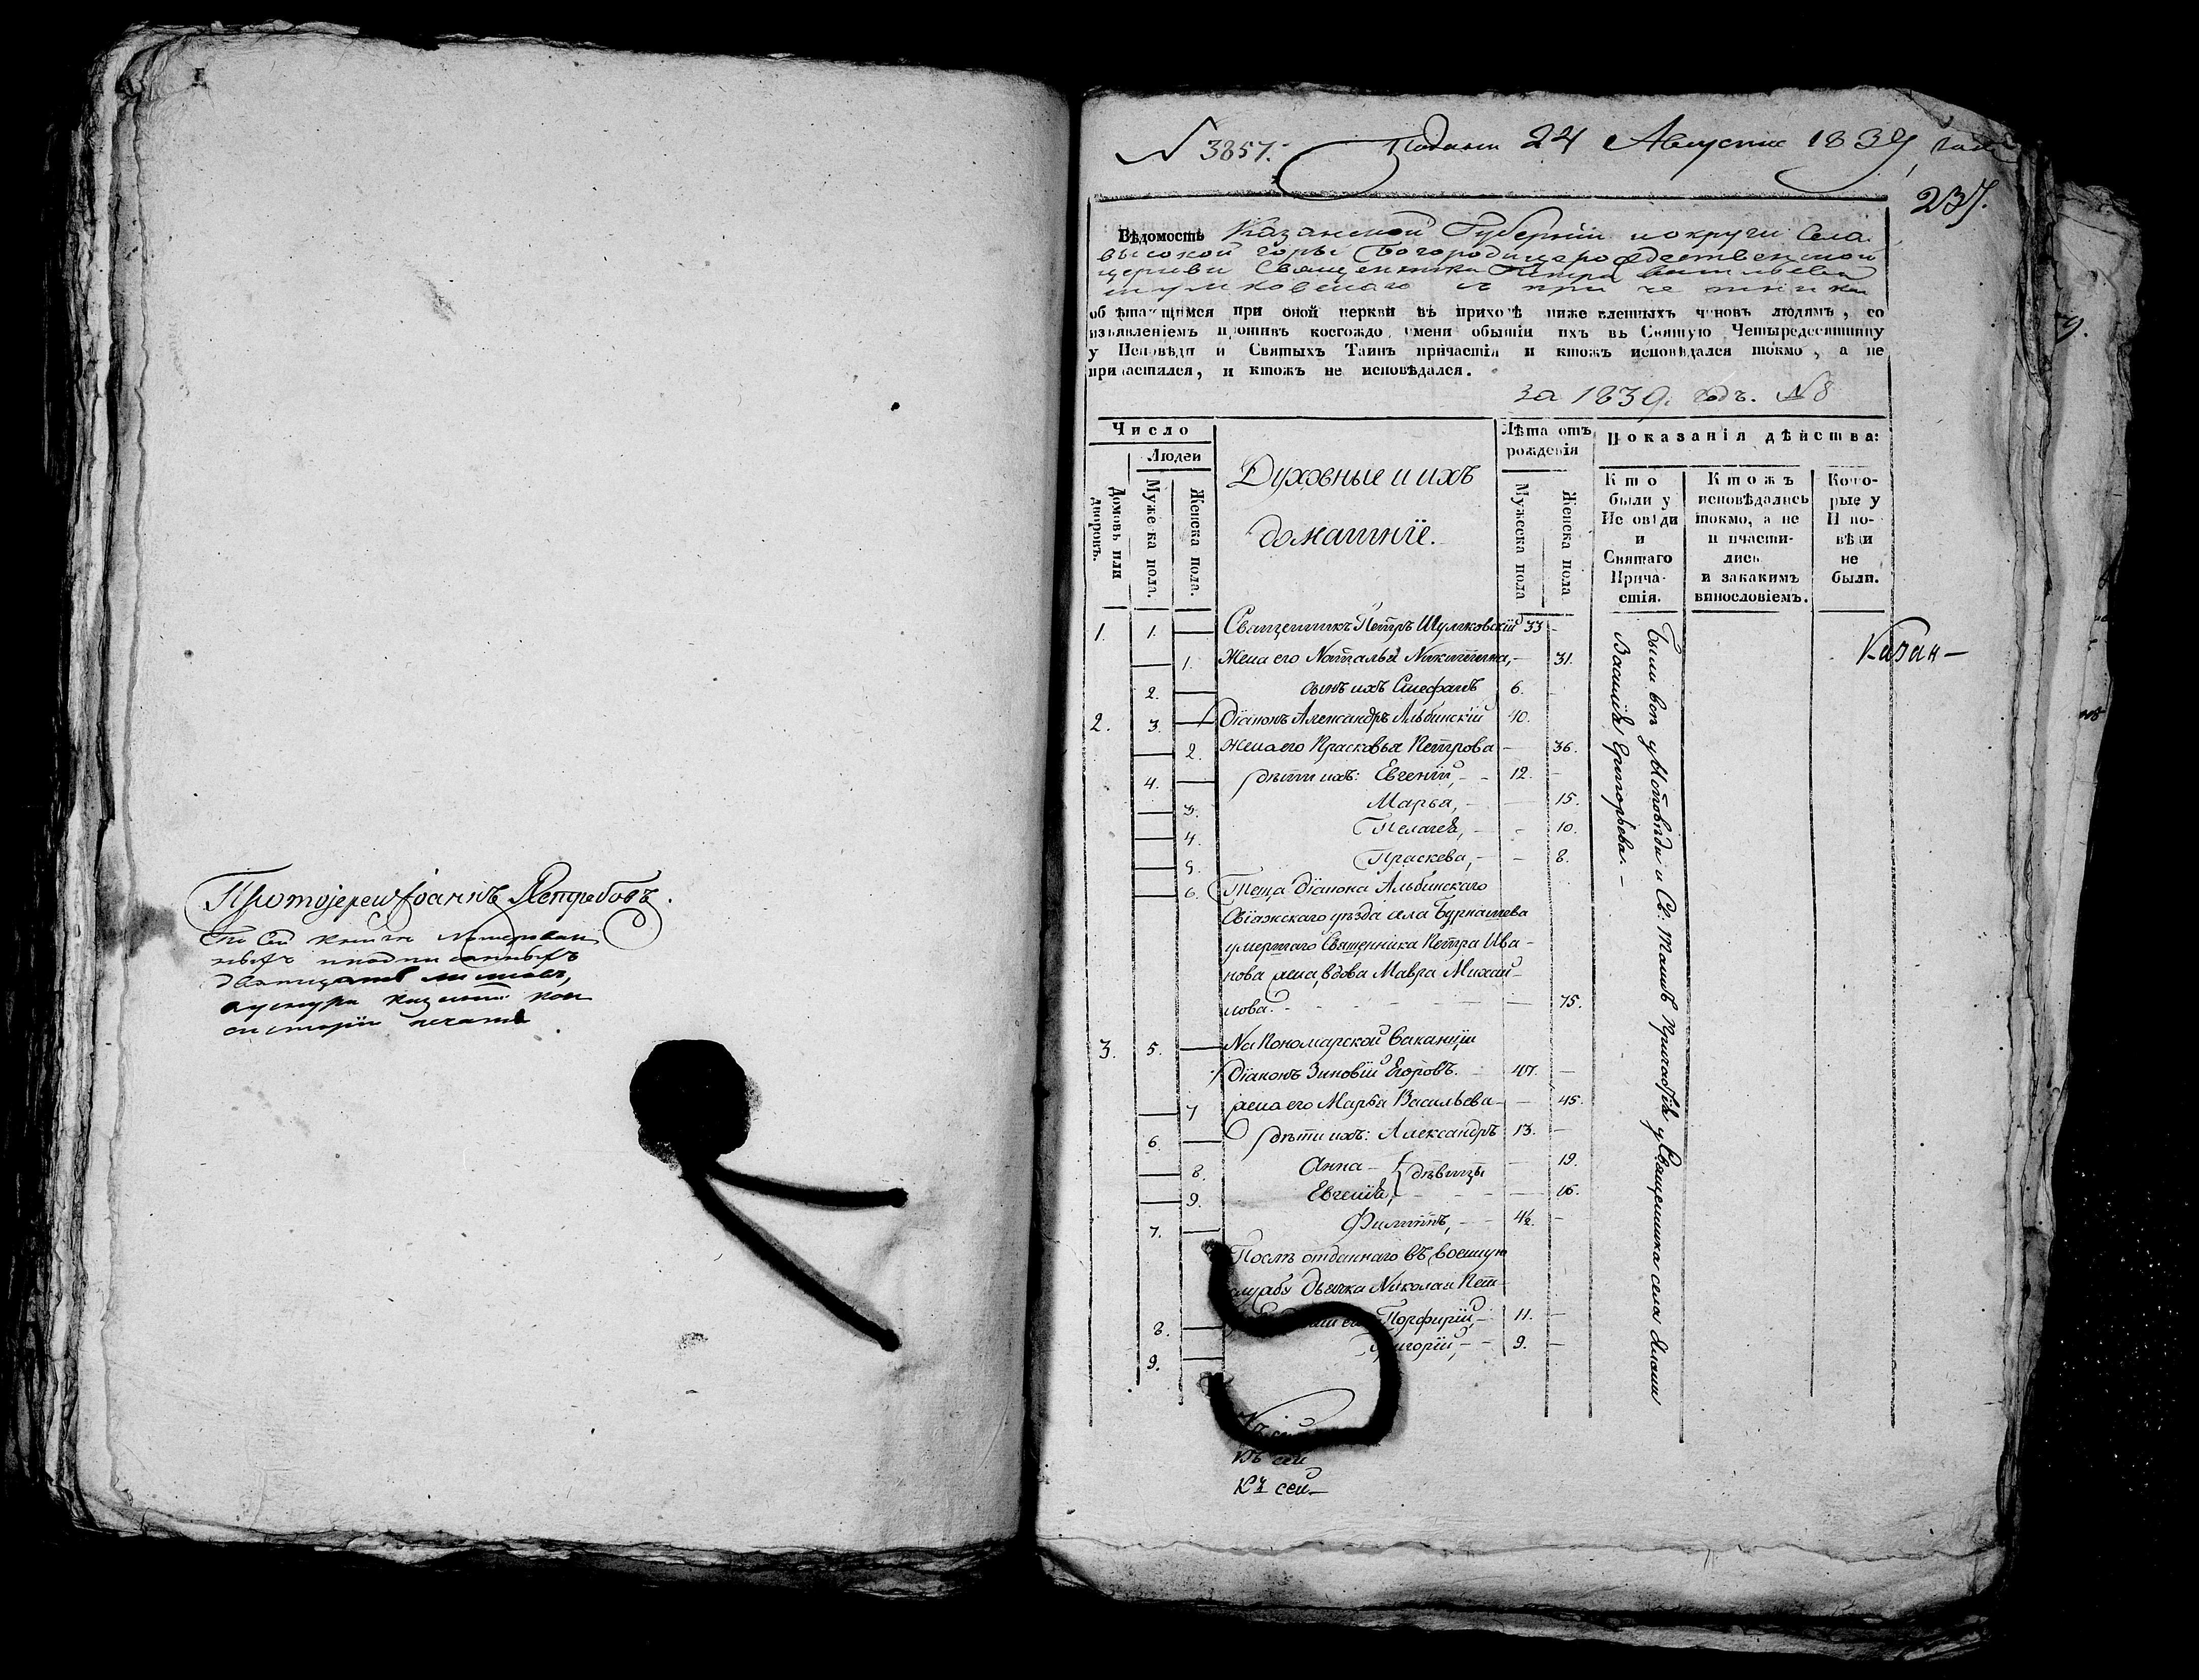 Протоіерей Іоаннъ Ястребовъ.
По сей книги номерован
ныхъ и подписанныхъ
двадцать листовъ,
у шнура казенной кон
систоріи печать
N 3857. Подана 24 Августа 1839 года
237.
Вѣдомость Казанской Губерніи и округи Села
высокой горы Богородицерождественской
церкви Священника Петра Васильева
Шумковскаго и причетники
обѣтающимся при оной церкви въ приходѣ нижеявленныхъ чиновъ людямъ, со
изъявленіемъ противъ коегождо имени обытіи ихъ въ Святую Четыредесятницу
у Исповѣди и Святыхъ Таинъ причастія и ктожъ исповѣдался токмо, а не
причастился, и ктожъ не исповѣдался.
за 1839. годъ. №8
Число
Людей
Домовъ или дворовъ.
Мужеска пола.
Женска пола.
Духовные и ихъ
домашніе.
Лѣта отъ
рожденія
Мужеска пола
Женска пола
Показанія дѣйства:
Кто
были у
Исповѣди
и
Святаго
Прича-
стія.
Ктожъ
исповѣдались
токмо, а не
причасти-
лись
и закакимъ
винословіемъ.
Кото-
рые у
Испо-
вѣди
не
были.
1. 1. Священникъ Петръ Шумковскій 33 -
1. Жена его Наталья Никитина, - 31.
2. сынъ ихъ Стефанъ 6.
2. 3. Діаконъ Александръ Альбинскій 40.
2. Жена его Прасковья Петрова - 36.
4. дѣти ихъ: Евгеній, - - 12. -
3. Марья, - 15.
4. Пелагея, - 10.
5. Праскева, - - 8.
6. Теща діакона Альбинскаго
Свіяжскаго уѣзда села Бурнашева
умершаго Священника Петра Ива-
нова жена, вдова Мавра Михай-
лова. - 75.
3. 5. На Пономарской вакансіи
Діаконъ Зиновій Егоровъ. 47. -
7 жена его Марья Васильева - 45.
6. дѣти ихъ: Александръ 13. -
8. Анна - { дѣвицы - 19.
9. Евгенія, - 16.
7. Филиппъ, - - 4½. -
Послѣ отданнаго въ военную
службу дьячка Николая Пет-
8. Порфирій, - 11. -
9. Григорій, - - 9. -
Были воп у Исповѣди и Св: Таинъ Причастія у Священника села
Василія Григорьева. -
Казан-
Къ сей
Къ сей